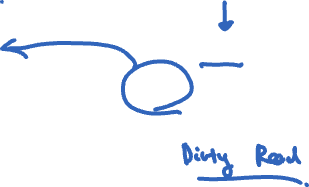 Dirty Read